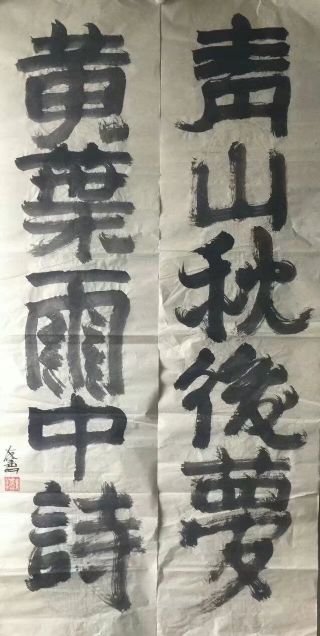 青山秋後夢
黄葉雨中詩